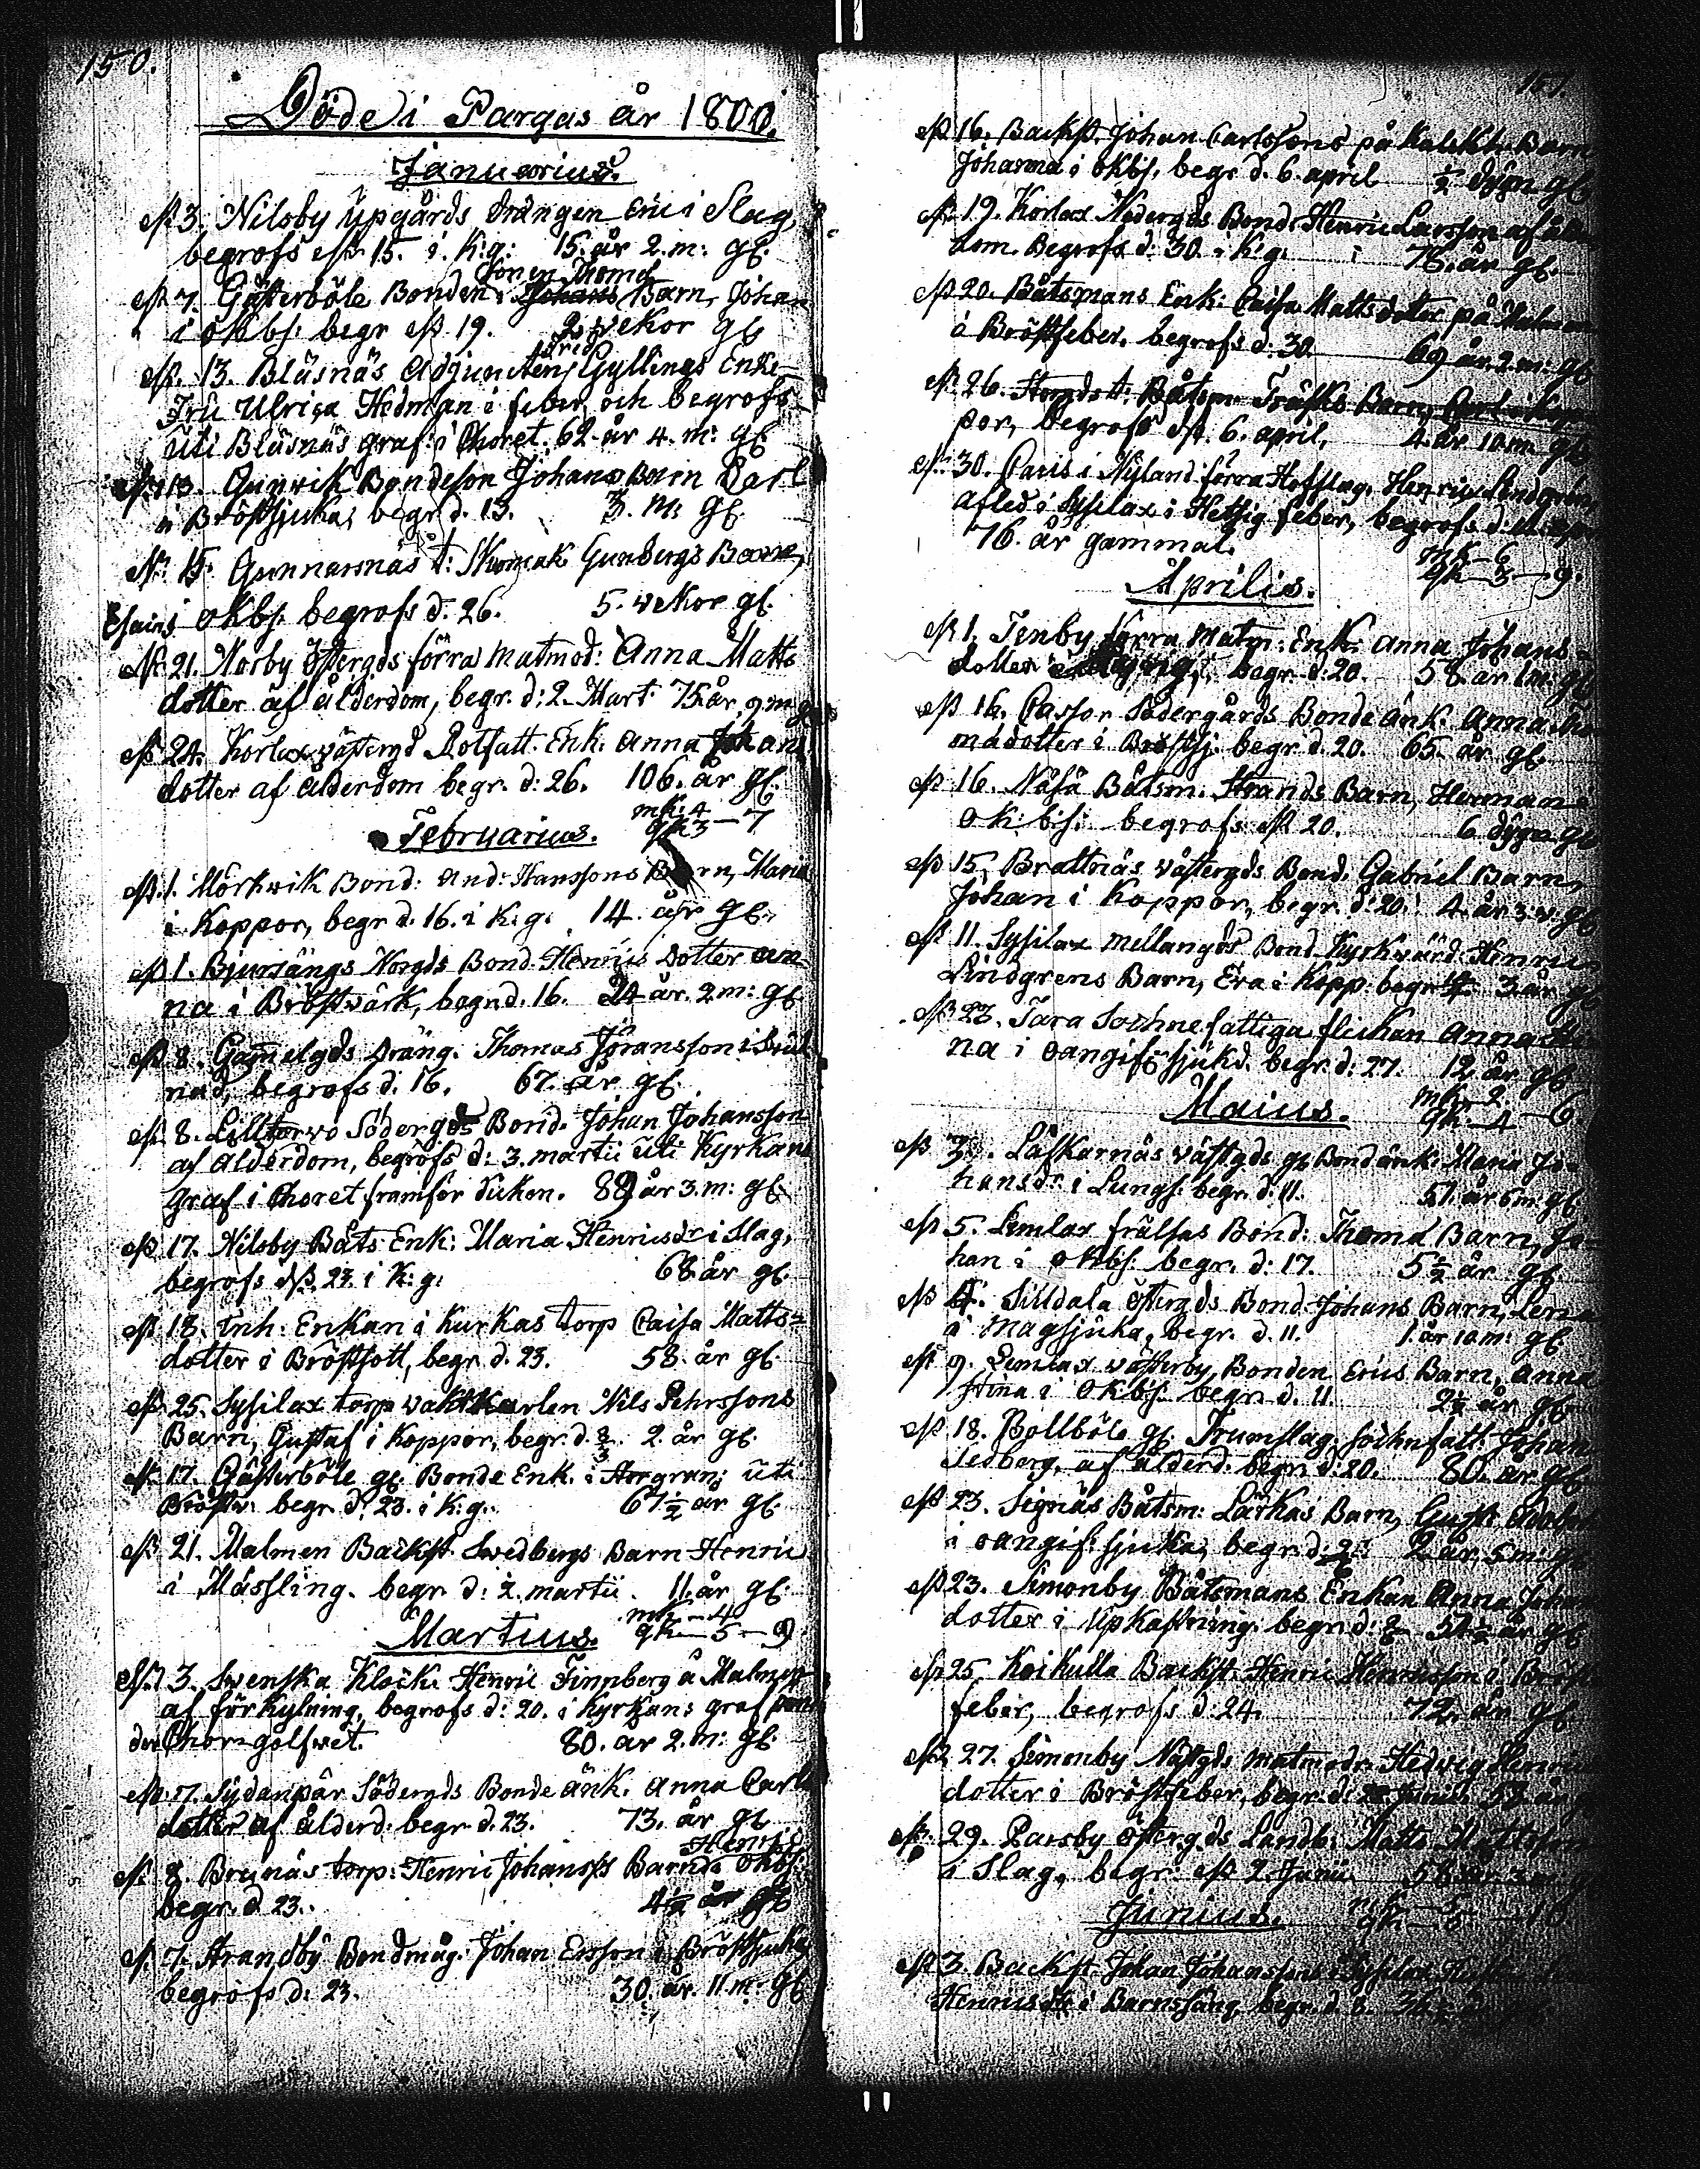 150.
Döde i Pargas år 1800.
Januarius.
3. Nilsby Upgårds Drängen Eric i Slag,
begrofs 15. i K:g: 15. år 2. m: gl.
Sonen Thomas
7. Gästerböle Bonden Barn, Johan
i okbs: begr 19. 2 wekor gl
13. Bläsnäs Adjuncten Gyllings Enke-
Fru Ulrica Hedman i feber, och begrofs
uti Bläsnäs graf i Choret. 62. år 4. m: gl.
13. Gunwik Bondeson Johans Barn Carl
i Bröstsjuka, begr d. 13. 3. m: gl.
15. Gunnarsnäs t: Skomak Gunbergs Barn,
i okbs. begrofs d. 26. 5. wekor gl.
21. Norby Östergds förra matmod: Anna Matts
dotter af ålderdom, begr. d: 2. Mart. 75. år 9. m
24. Korlax wästergd Rotfatt. Enk. Anna Johans
dotter af ålderdom begr. d: 26. 106. år gl.
mk. 4
Februarius. qk 3 — 7
1. Mörkwik Bond: And: Hanssons Barn, Maria
i Koppor, begr d. 16. i K: g: 14. år gl.
1. Bjursängs Norgds Bond. Henrics Dotter An
na i Bröstwärk, begr d. 16. 24 år. 2 m: gl
8. Gammelgds Dräng. Thomas Jöransson i
nad, begrofs d. 16. 67. år gl.
8. Lilltervo Södergds Bond. Johan Johansson
af ålderdom, begrofs d: 3. martii uti Kyrkans
graf i Choret framför disken. 89 år 3. m: gl
17. Nilsby Båts Enk: Maria Henricsdr i Slag,
begrofs 23. i K: g: 68 år gl.
18. Inh: Enkan i Kurkas torp Caisa Matts-
dotter i Bröstsott, begr. d. 23. 58. år gl.
25. Sysilax torp waktkarlen Nils Pehrssons
Barn, Gustaf i Koppor, begr. d. 2/3. 2. år gl.
17. Gästerböle gl. Bonde Enk. i Storgran: uti
Bröstw: begr. d. 23. i K: g.: 67 1/2 år gl.
21. Malmen Backst. Swedbergs Barn Henric
i Mässling. begr. d: 2. martii. 11. år gl.
mk — 4
Martius. qk — 5 — 9
3. Swenska Klock. Henric Finnberg å Malmen
af förkylning, begrofs d: 20. i Kyrkans graf
Chorsgolfwet. 80. år 2. m: gl.
7. Sydanpär Södergds Bonde änk. Anna Carls
dotter af ålderd: begr. d. 23. 73. år gl
Henric
8. Brunäs torp: Henric Johanss Barn i okbs:
begr. d. 23. 4 1/2 år gl
7. Strandby Bondmåg: Johan Ersson i Bröstsjuka
begrofs d: 23. 30. år. 11. m: gl
151.
16. Backst. Johan Carlssons på Barn
Johanna i okbs. begr d. 6. april 1/2 dygn gl
19. Korlax Nedergds Bond. Henric Larsson af
dom. Begrofs d: 30. i K:g. 78. år gl.
20. Båtsmans Enk: Caisa Matts dotter på
i Bröstfeber. begrofs d: 30. 69 år. 2. m: gl
26. Båtsm. Träsks Barn, Carl i
por, begrofs d. 6. april, 4. år 10 m. gl
30. Paris i Nyland förra Hofslag. Henric Lindgren
afled i Sysilax i Hettig feber, begrofs d: 11.
76. år gammal. mk — 6
Aprilis. qk — 3 — 9.
1. Tenby förra matm: Enk. Anna Johans-
dotter begr. d. 20. 58. år 1 m. gl
16. Södergårds Bonde änk. Anna
madotter i Bröstsj. begr. d. 20. 65. år gl.
16. Båtsm. Strands Barn, Herman i
ok: bs: begrofs 20. 6 dygn gl
15. Brattnäs wästergds Bond. Gabriel Barn,
Johan i Koppor, begr. d: 20. 4. år 3. w. gl
11. Sysilax mellangds Bond Kyrkwärd Henric
Lindgrens Barn, Eva i Kopp: begr 3. år gl
23. Tara Sochne fattiga flickan Anna
na i oangifn sjukd. begr. d: 27. 12. år gl
mk — 2.
Maius. qk. — 4 — 6.
3. Läskarnäs wästgds gl Bond änk. Maria Jo-
hansdr i Lungs. begr. d: 11. 51. år 6 m: gl.
5. Lemlax frälsas Bond: Thoma Barn, Jo-
han i okbs: begr. d: 17. 5 1/2 år gl.
4. Silldala östergds Bond. Johans Barn, Lena
i magsjuka, begr. d. 11. 1. år 10 m: gl
9. Lemlax wästerby Bonden Erics Barn, Anna
Stina i okbs: begr. d. 11. 2 1/2 år gl
18. Bollböle gl. Trumslag: sochnfatt. Johan
Sedberg, af ålderd: begr: d: 20. 80. år gl
23. Signäs Båtsm: Lärkas Barn, Gust:
i oangif: sjuka, begr. d: 2 år. 5 m: gl
23. Simonby Båtsmans Enkan Anna Johans
dotter i Upkastning begr. d: 54 1/2 år gl
25. Koikulla Backst: Henric Henricsson i Bröst
feber, begrofs d: 24. 72. år gl
27. Simonby Nästgds matmodr. Hedwig Henrics
dotter i Bröstfeber, begr. d: Junii. 53. år
29. Parsby Östergds Landb: Matts Mattsson
i Slag, begr: 2. Junii 58. år 3. m: gl
mk — 5
Junius. qk — 5 — 10
3. Backst. Johan Johanssons i Sysilax
Henricsdr i Barnsäng, begr. d. 8. 36 1/2